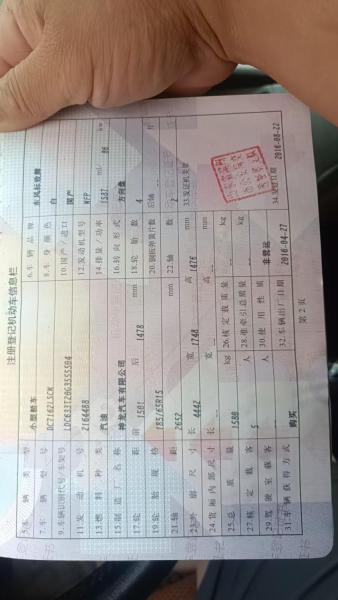 注册登记机动车信息栏
5.车辆类型 小型轿车 6.车辆品牌 东风标致牌
7.车辆型号 DC7162LSCK 8.车身颜色 白
9.车辆识别代号/车架号 10.国产/进口 国产
11.发动机号 2164488 12.发动机型号 NFP
13.燃料种类 汽油 14.排量/功率 1587 86 kw
15.制造厂名称 神龙汽车有限公司 16.转向形式 方向盘
17.轮距 前 1501 后 1478 mm 18.轮胎数 4
19.轮胎规格 185/65R15 20.钢板弹簧片数 后轴
21.轴距 2652 mm 22.轴数 2
23.外廓尺寸 长 4442 宽 1748 高 1476 mm 33.发证机关章
24.货厢内部尺寸 长 宽 高 mm
25.总质量 1580 kg 26.核定载质量 kg
27.核定载客 5 人 28.准牵引总质量 kg
29.驾驶室载客 人 30.使用性质 非营运
31.车辆获得方式 购买 32.车辆出厂日期 2016-04-27 34.发证日期 2016-08-22
第 2 页